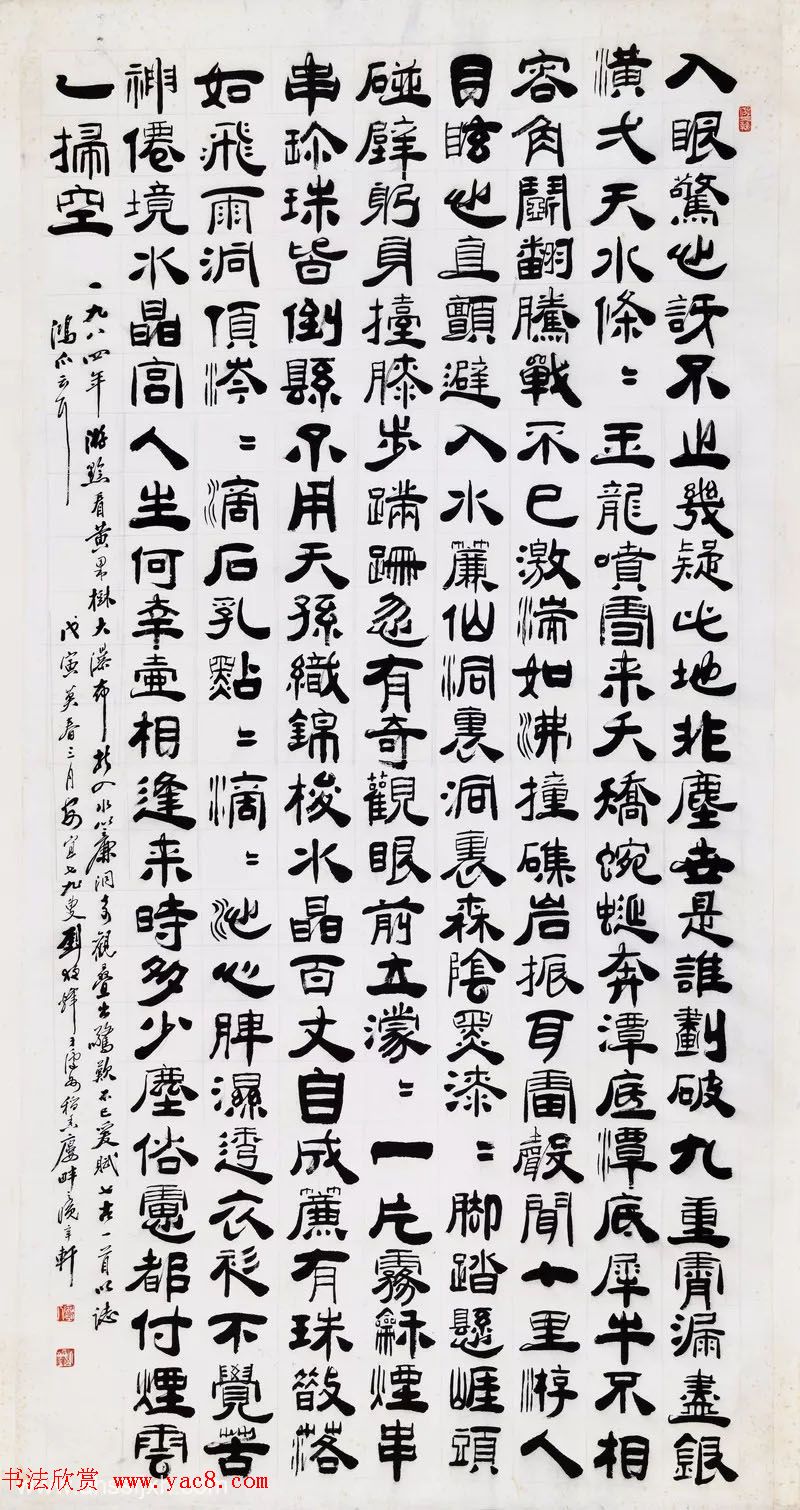 入眼驚心訝不止幾疑此地非塵世是誰劃破九重霄漏盡銀
潢弌天水條〻玉龍噴雪来夭矯蜿蜒奔潭底潭底犀牛不相
容角鬭翻騰戰不已激湍如沸撞礁岩振耳雷聲聞十里游人
目眩心直顫避入水簾仙洞裏洞裏森陰黑漆〻脚踏懸崕頭
碰壁躬身擡膝步蹣跚忽有奇觀眼前立濛〻一片霧龢煙串
串珍珠皆倒縣不用天孫織錦梭水晶百丈自成簾有珠散落
如飛雨洞頂涔〻滴石乳點〻滴〻沁心脾濕透衣衫不覺苦
神僊境水晶宫人生何幸相逢来時多少塵俗慮都付煙雲
乙掃空
一九八四年游黔看黄果樹大瀑布入水簾洞奇觀疊出驚歎不已爰賦七古一首以誌
鴻爪云尔 戊寅莫春三月安宜七九叟劉
书法欣赏 www.yac8.com